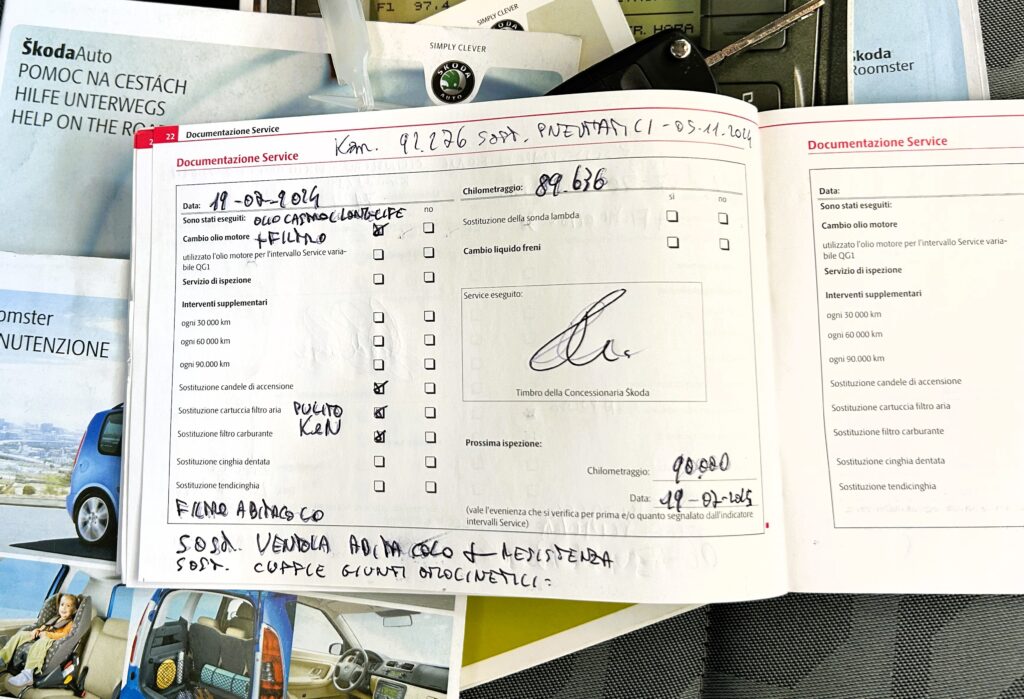 F1 97.4
FR. HORA
SIMPLY CLEVER
ŠkodaAuto
POMOC NA CESTÁCH
HILFE UNTERWEGS
HELP ON THE
SIMPLY CLEVER
ŠKODA
AUTO
Škoda
Roomster
omster
NUTENZIONE
2
22 Documentazione Service
Km. 92.276 SOST. PNEUMATICI - 05.11.2024
Documentazione Service
Data: 19-07-2024
Sono stati eseguiti: OLIO CASTROL LONG-LIFE
sì no
Cambio olio motore + FILTRO
utilizzato l'olio motore per l'intervallo Service varia-
bile QG1
Servizio di ispezione
Interventi supplementari
ogni 30 000 km
ogni 60 000 km
ogni 90.000 km
Sostituzione candele di accensione
Sostituzione cartuccia filtro aria PULITO
Sostituzione filtro carburante K&N
Sostituzione cinghia dentata
Sostituzione tendicinghia
FILTRO ABITACOLO
SOST. VENTOLA ABITACOLO + RESISTENZA
SOST. CUFFIE GIUNTI OMOCINETICI
Chilometraggio: 89.636
sì no
Sostituzione della sonda lambda
Cambio liquido freni
Service eseguito:
Timbro della Concessionaria Škoda
Prossima ispezione:
Chilometraggio: 90.000
Data: 19-07-2025
(vale l'evenienza che si verifica per prima e/o quanto segnalato dall'indicatore
intervalli Service)
Documentazione Service
Data:
Sono stati eseguiti:
Cambio olio motore
utilizzato l'olio motore per l'intervallo Service varia-
bile QG1
Servizio di ispezione
Interventi supplementari
ogni 30 000 km
ogni 60 000 km
ogni 90.000 km
Sostituzione candele di accensione
Sostituzione cartuccia filtro aria
Sostituzione filtro carburante
Sostituzione cinghia dentata
Sostituzione tendicinghia